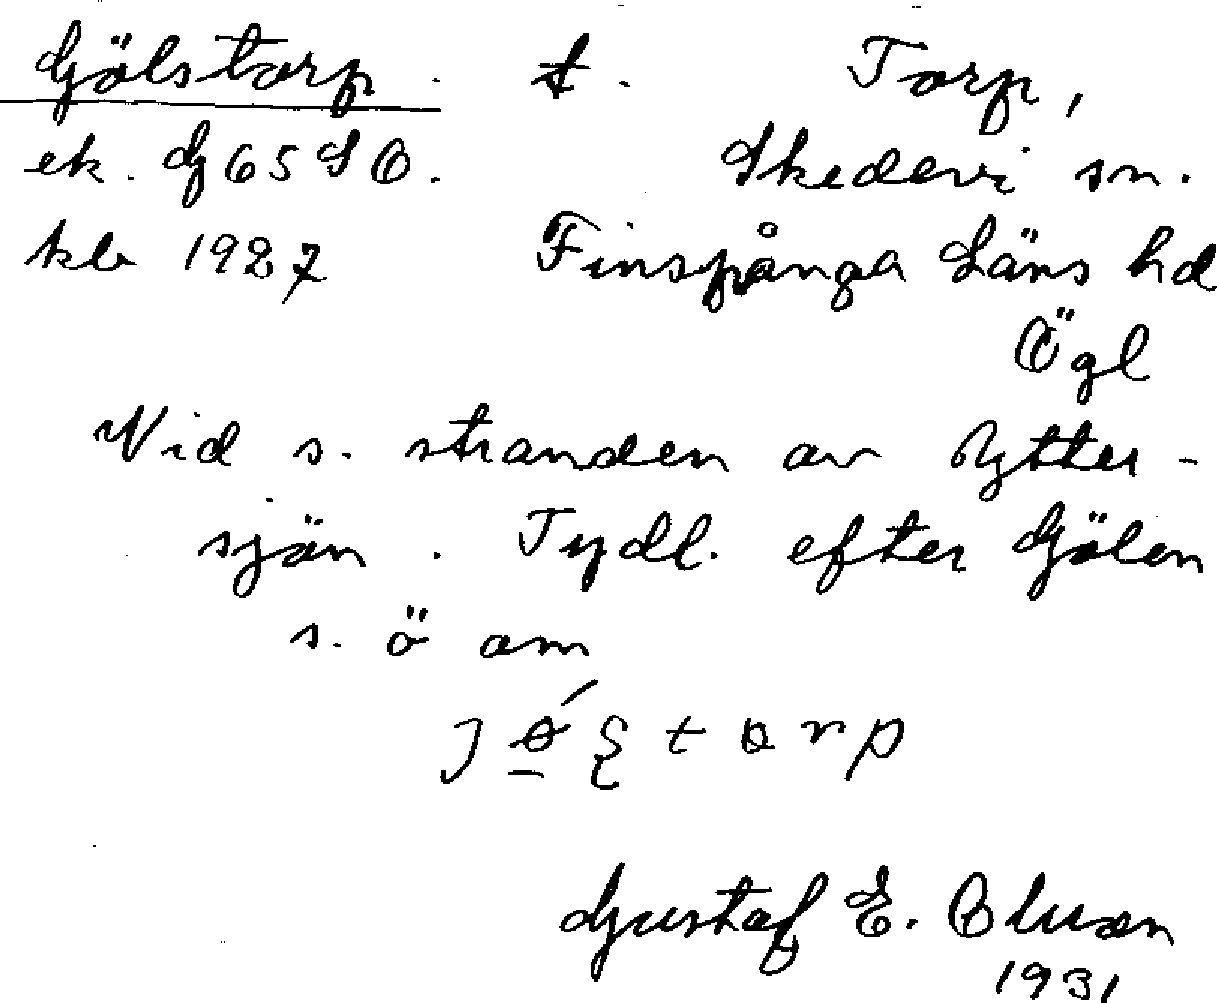 Gölstorp. t. Torp,
ek. G 65 S O. Skedevi sn.
kb 1927 Finspånga Läns hd
Ögl
Vid s. stranden av Rytter-
sjön. Tydl. efter Gölen
s. ö om
Gustaf E. Oluson
1931